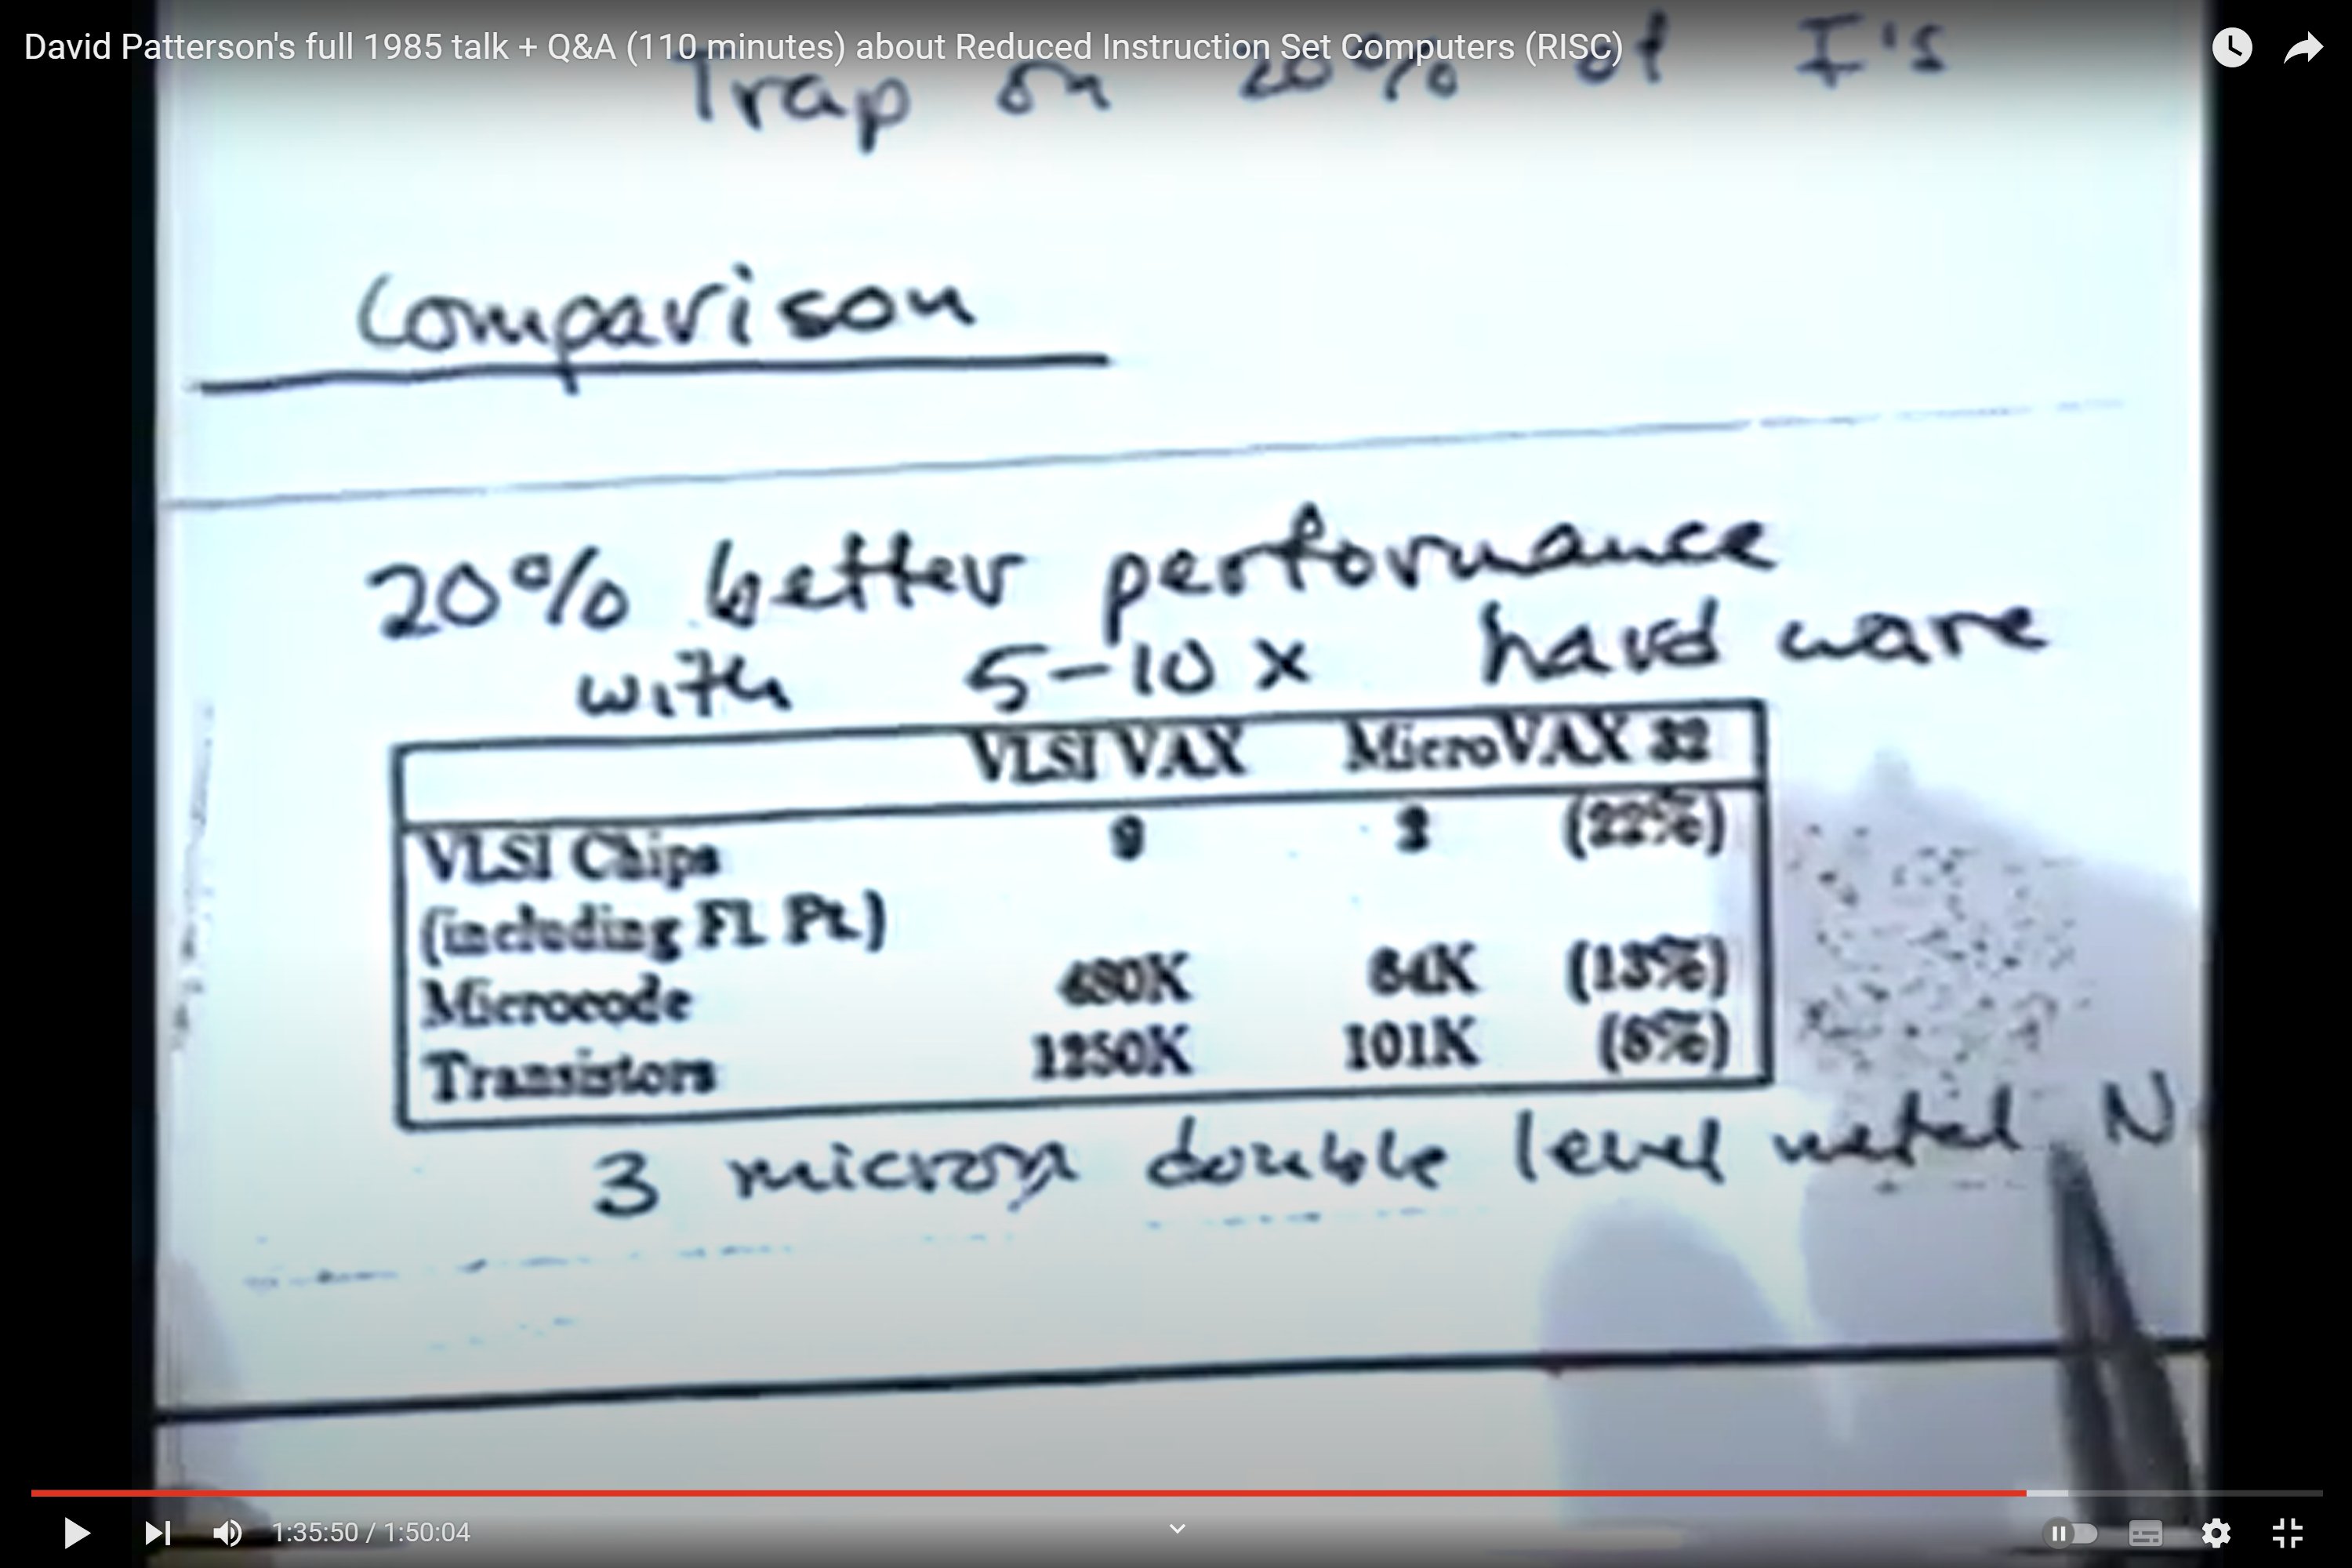 David Patterson's full 1985 talk + Q&A (110 minutes) about Reduced Instruction Set Computers (RISC)
Trap on 20% of I's
Comparison
20% better performance
with 5-10 x hard ware
VLSI VAX MicroVAX 32
VLSI Chips 9 2 (22%)
(including Fl. Pt.)
Microcode 480K 64K (13%)
Transistors 1250K 101K (8%)
3 micron double level metal N
1:35:50 / 1:50:04